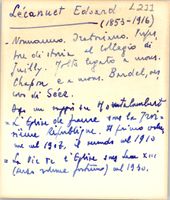 Lécanuet Edouard L232
(1853-1916)
- Normanno. Oratoriano. Profes
sore di storia al collegio di
Juilly. Molto legato a mons.
Chapon e a mons. Bardel, ves
covo di Séez.
Montalembert
- L'Eglise de France sous la Troi
sième République. Il primo volu
me nel 1907, il secondo nel 1910
- La vie de l'Eglise sous Léon XIII
(
) nel 1930.